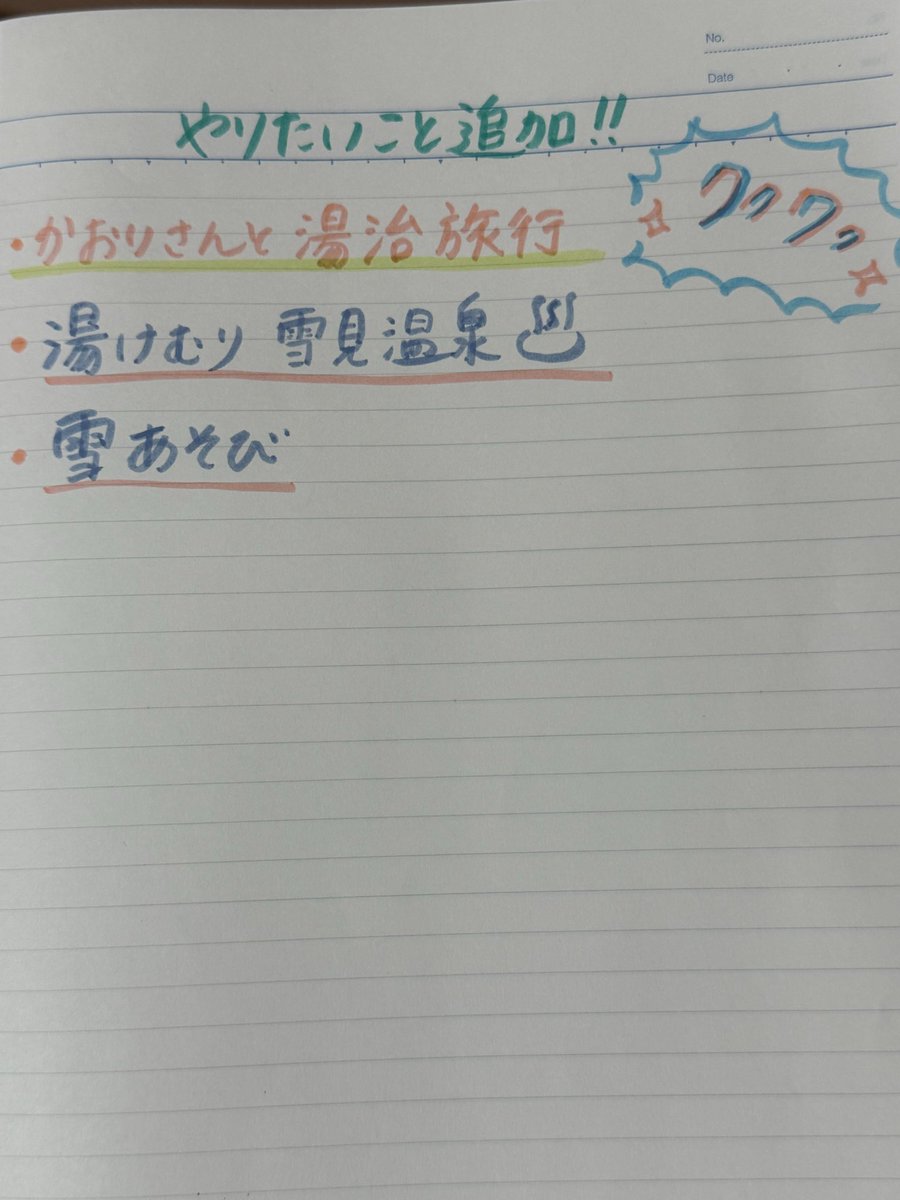 No.
Date
やりたいこと追加!!
ワッワッ
・かおりさんと 湯治旅行
・湯けむり 雪見温泉♨
・雪あそび